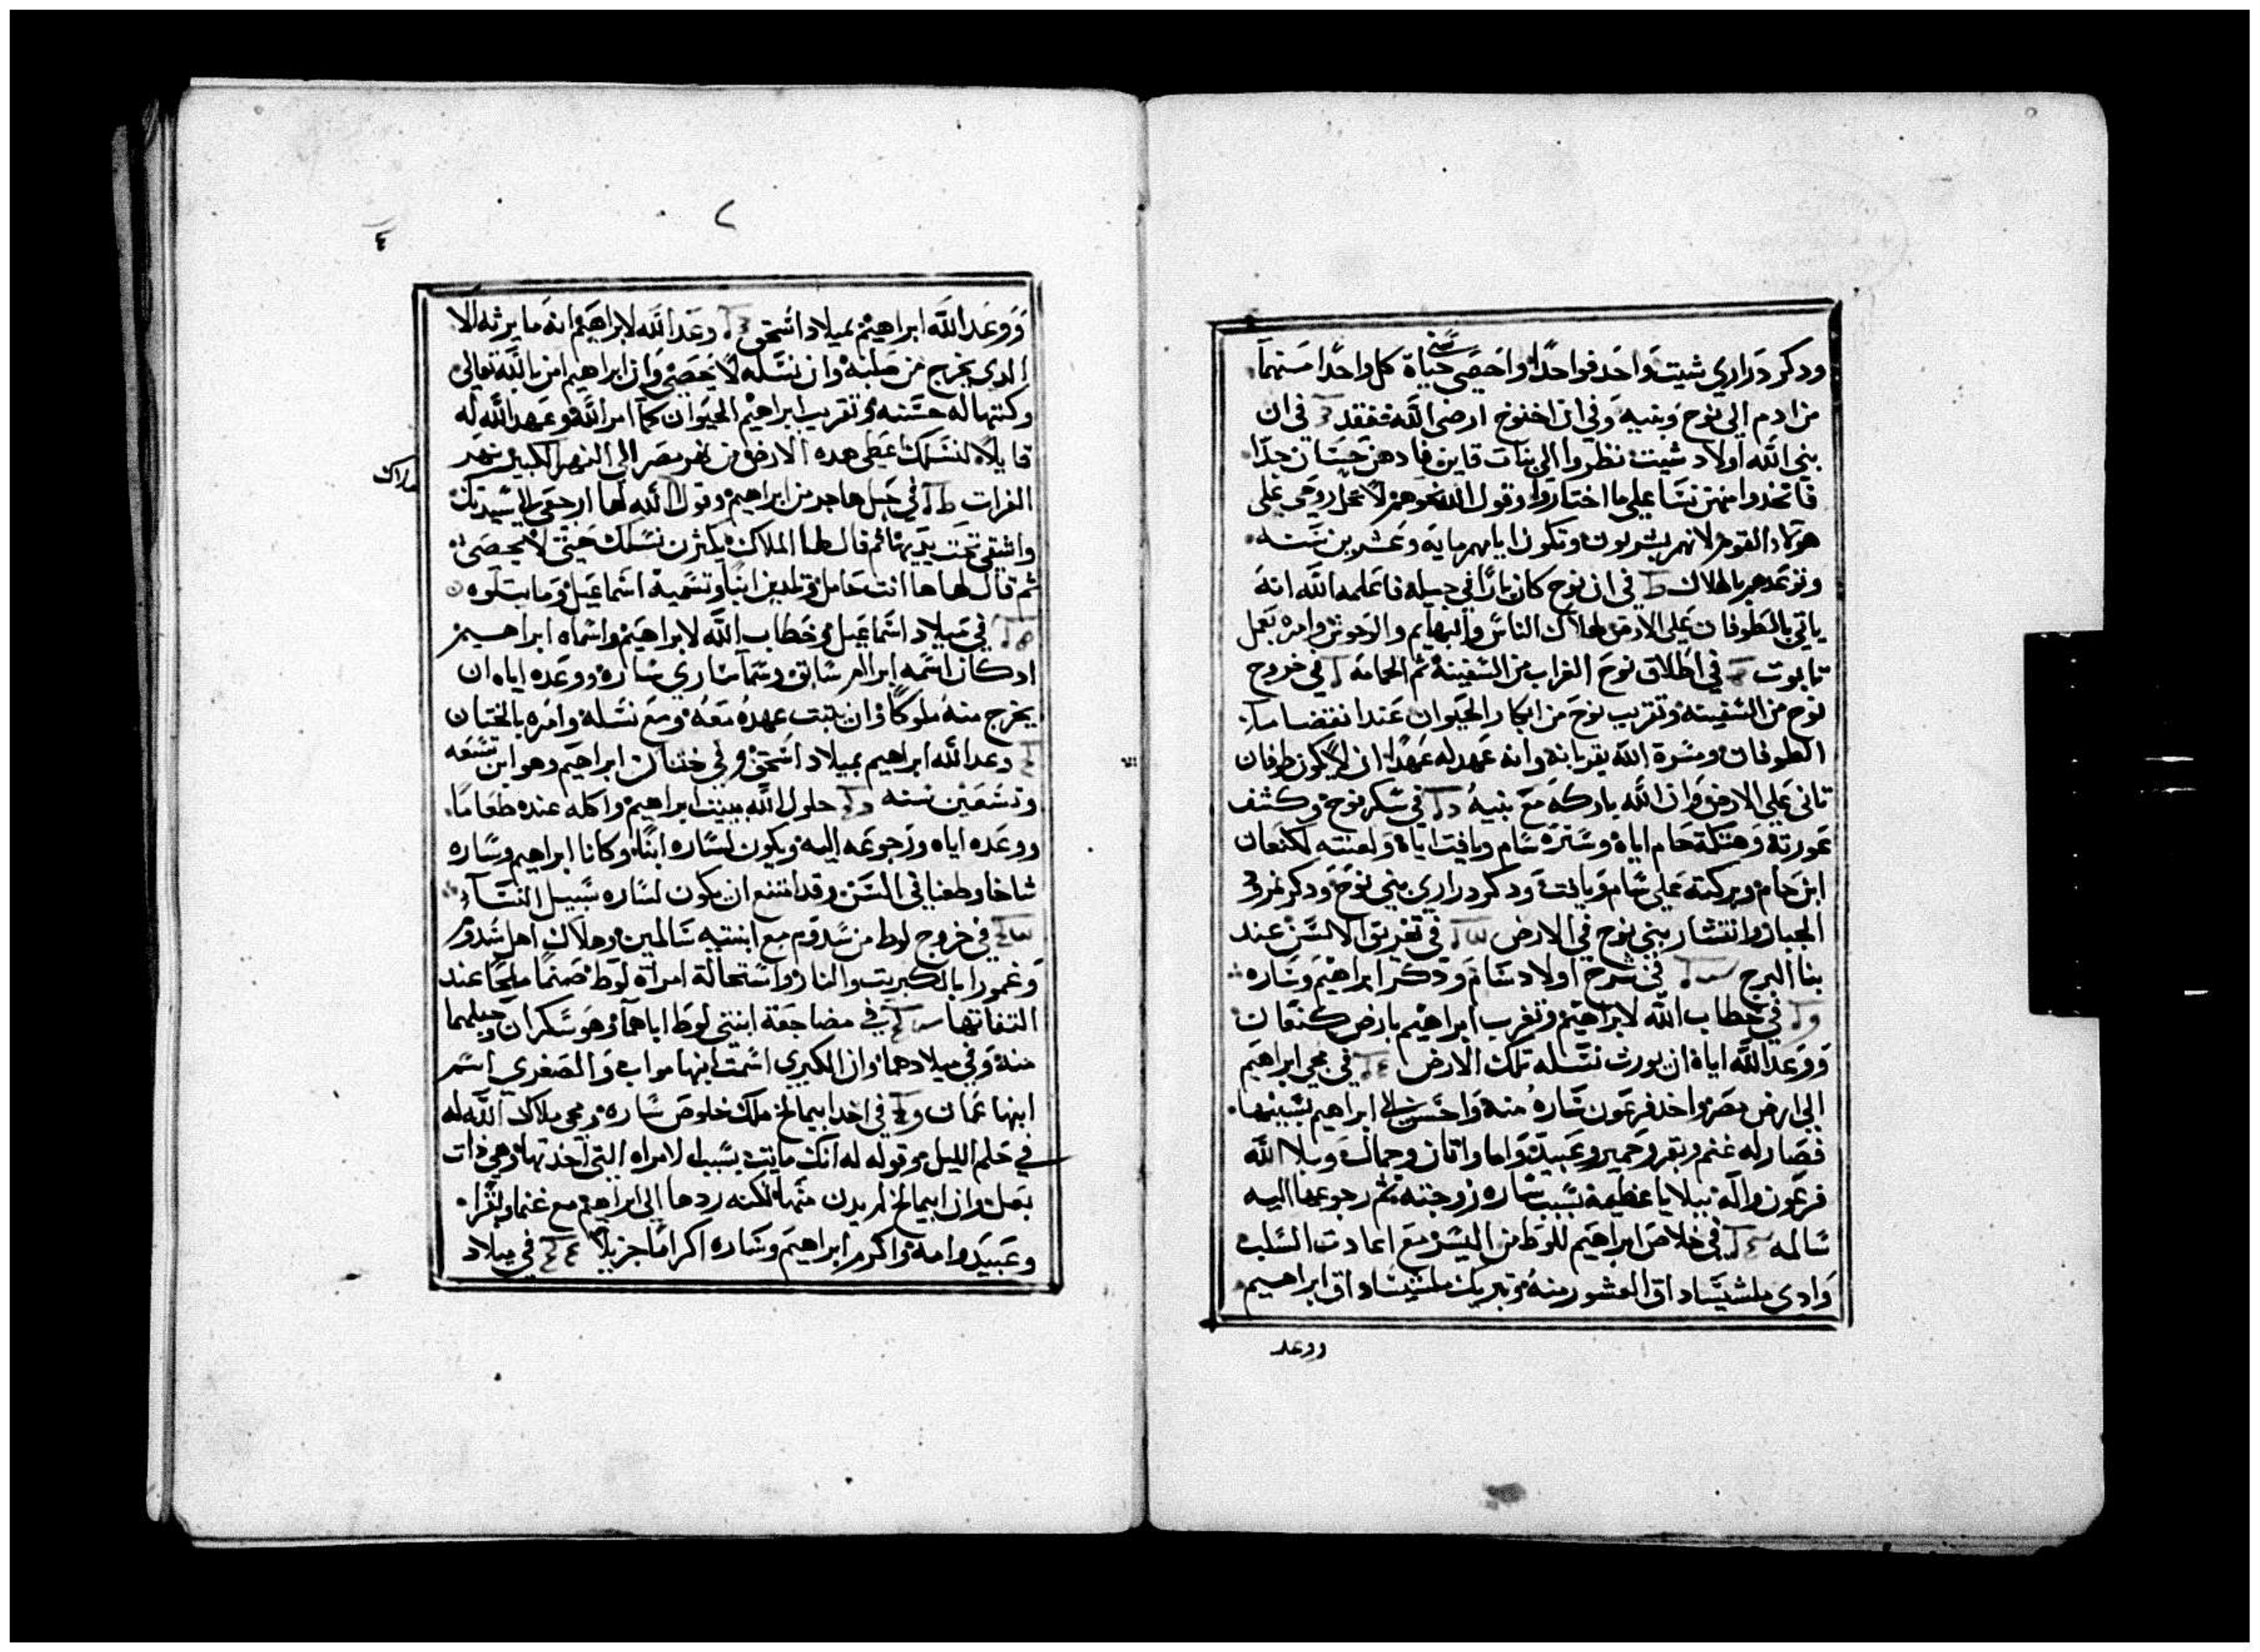 سني
ودكر دراري شيت واحد فواحدًا واحصي حياة كل واحدًا منهما
من ادم الي نوح وبنيه وفي ان اخنوخ ارضي الله ففقد في ان
بني الله اولاد شيت نظروا الي بنات قاين فادهن حسان جدًا
فاتخدوا منهن نسا علي ما اختاروا وقول الله نحوهم لا تحل روحي علي
هولاد القوم لانهم بشريون وتكون ايامهم ماية وعشرين سنه
وتوعدهم بالهلاك في ان نوح كان بارًا في جيله فاعلمه الله انه
ياتي بالطوفان علي الارض لهلاك الناس والبهايم والوحوش وامره بعمل
تابوت في اطلاق نوح الغراب من السفينه ثم الحمامه في خروج
نوح من السفينه وتقريب نوح من ابكار الحيوان عند انقضا ما
الطوفان ومسرة الله بقربانه وانه عهد له عهدًا ان لا يكون طوفان
تاني علي الارض وان الله باركه مع بنيه في سكر نوح وكشف
عورته وهتكة حام اياه وسترة سام ويافت اياه ولعنته لكنعان
ابن حام وبركته علي سام ويافت ودكر دراري بني نوح ودكر نمرود
الجبار وانتشار بني نوح في الارض في تفريق الالسن عند
بنا البرج في شرح اولاد سام ودكر ابراهيم وساره
في خطاب الله لابراهيم وتغرب ابراهيم بارض كنعان
ووعد الله اياه ان يورث نسله تلك الارض في مجي ابراهيم
الي ارض مصر واخد فرعون ساره منه واحسن الي ابراهيم بسببها
فصار له غنم وبقر وحمير وعبيد واما واتان وجمال وبلا الله
فرعون واله ببلايا عظيمة بسبب ساره زوجته ثم رجوعها اليه
سالمه في خلاص ابراهيم للوط من اليسر مع اعادت السلب
وادي ملشيساداق العشور منه وتبريك ملشيساداق ابراهيم
ووعد
٢
٤
ووعد الله ابراهيم بميلاد اسحق وعد الله لابراهيم انه ما يرثه الا
الدي يخرج من صلبه وان نسله لا يحصي وان ابراهيم امن بالله تعالي
وكتبها له حسنه وتقريب ابراهيم الحيوان كما امر الله وعهد الله له
قايلًا لنسلك اعطي هده الارض من نهر مصر الي النهر الكبير نهر
الفرات في حبل هاجر من ابراهيم وقول الله لها ارجعي الي سيدتك
ملاك
واشقي تحت يديها ثم قال لها الملاك يكثرن نسلك حيثي لا يحصي
ثم قال لها ها انت حامل وتلدين ابنًا وتسميه اسماعيل وما يتلوه
في ميلاد اسماعيل وخطاب الله لابراهيم واسماه ابراهيم
اد كان اسمه ابرام سابق وسما ساري ساره ووعده اياه ان
يخرج منه ملوكًا وان يثبت عهده معه ومع نسله وامره بالختان
وعد الله ابراهيم بميلاد اسحق وفي ختنان ابراهيم وهو ابن تسعه
وتسعين سنه حلول الله ببيت ابراهيم واكله عنده طعامًا
ووعده اياه ورجوعه اليه ويكون لساره ابنًا وكانا ابراهيم وساره
شاخا وطعنا في السن وقد امتنع ان يكون لساره سبيل النساء
في خروج لوط من سدوم مع ابنتيه سالمين وهلاك اهل سدوم
وغمورا بالكبريت والنار واستحالة امراة لوط صنمًا ملحًا عند
التفاتها في مضاجعة ابنتي لوط اباهما وهو سكران وحبلهما
منه وفي ميلادهما وان الكبري اسمت ابنها مواب والصغري اسم
ابنها عمان في اخد ابيمالخ ملك خلوص ساره ومجي ملاك الله له
في حلم الليل وقوله له انك مايت بسبب الامراه التي اخدتها وهي ذات
بعل وان ابيمالخ لم يدن منها لكنه ردها الي ابراهيم مع غنم وبقر
وعبيد وامه واكرم ابراهيم وساره اكرامًا جزيلًا في ميلاد